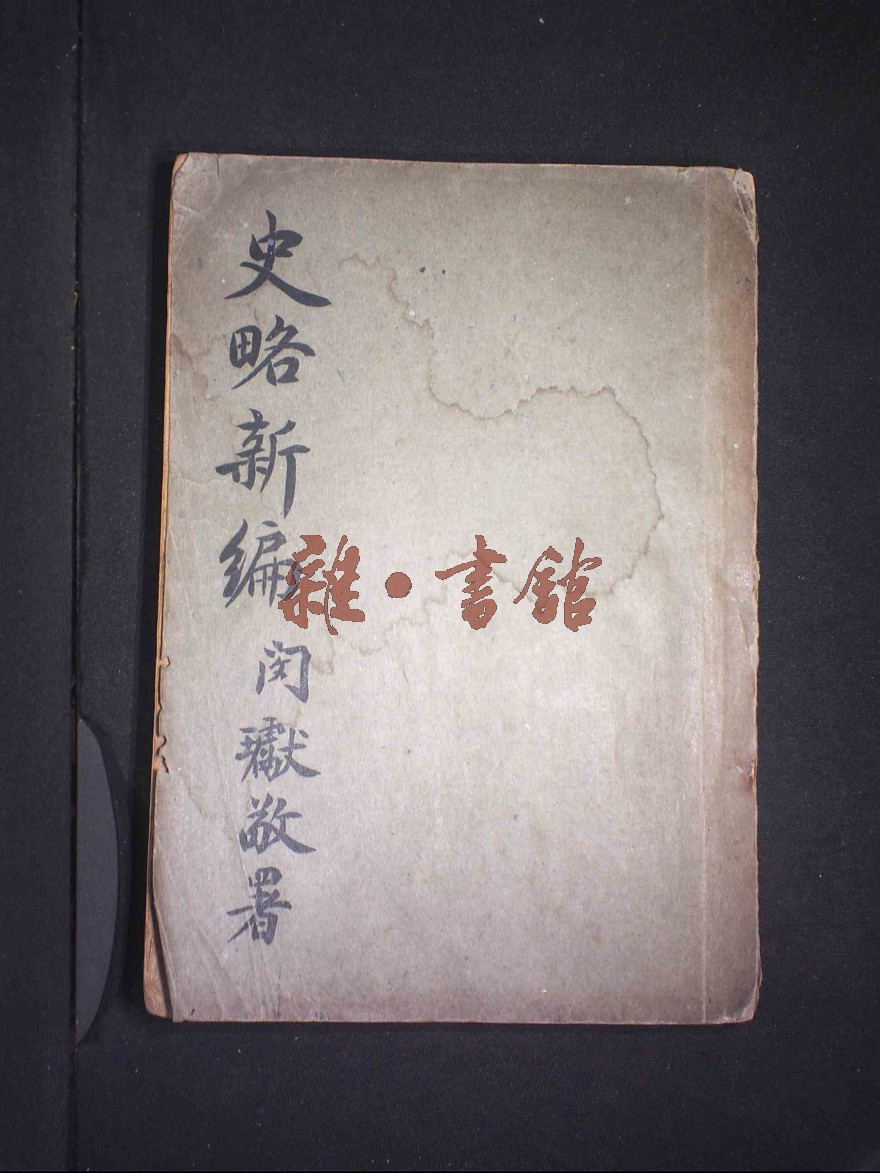 史略新編 閔瓛敬署
雜・書館